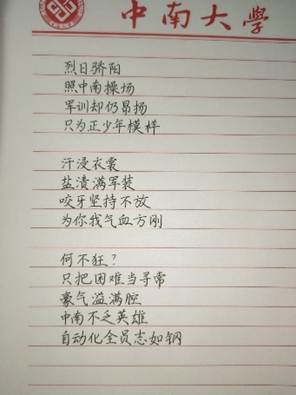 中南大學
烈日骄阳
照中南操场
军训却仍昂扬
只为正少年模样
汗浸衣裳
盐渍满军装
咬牙坚持不放
为你我气血方刚
何不狂？
只把困难当寻常
豪气溢满腔
中南不乏英雄
自动化全员志如钢